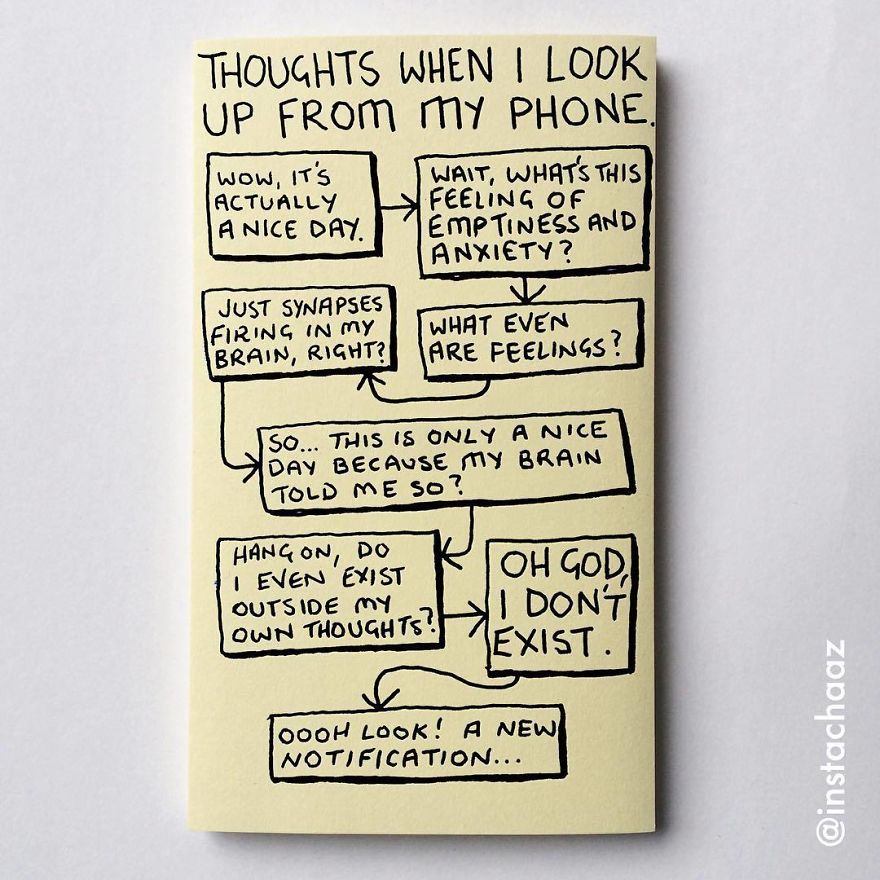 THOUGHTS WHEN I LOOK
UP FROM MY PHONE.
WOW, IT'S
ACTUALLY
A NICE DAY.
WAIT, WHAT'S THIS
FEELING OF
EMPTINESS AND
ANXIETY?
WHAT EVEN
ARE FEELINGS?
JUST SYNAPSES
FIRING IN MY
BRAIN, RIGHT?
SO... THIS IS ONLY A NICE
DAY BECAUSE MY BRAIN
TOLD ME SO?
HANG ON, DO
I EVEN EXIST
OUTSIDE MY
OWN THOUGHTS?
OH GOD,
I DON'T
EXIST.
OOOH LOOK! A NEW
NOTIFICATION...
@instachaaz